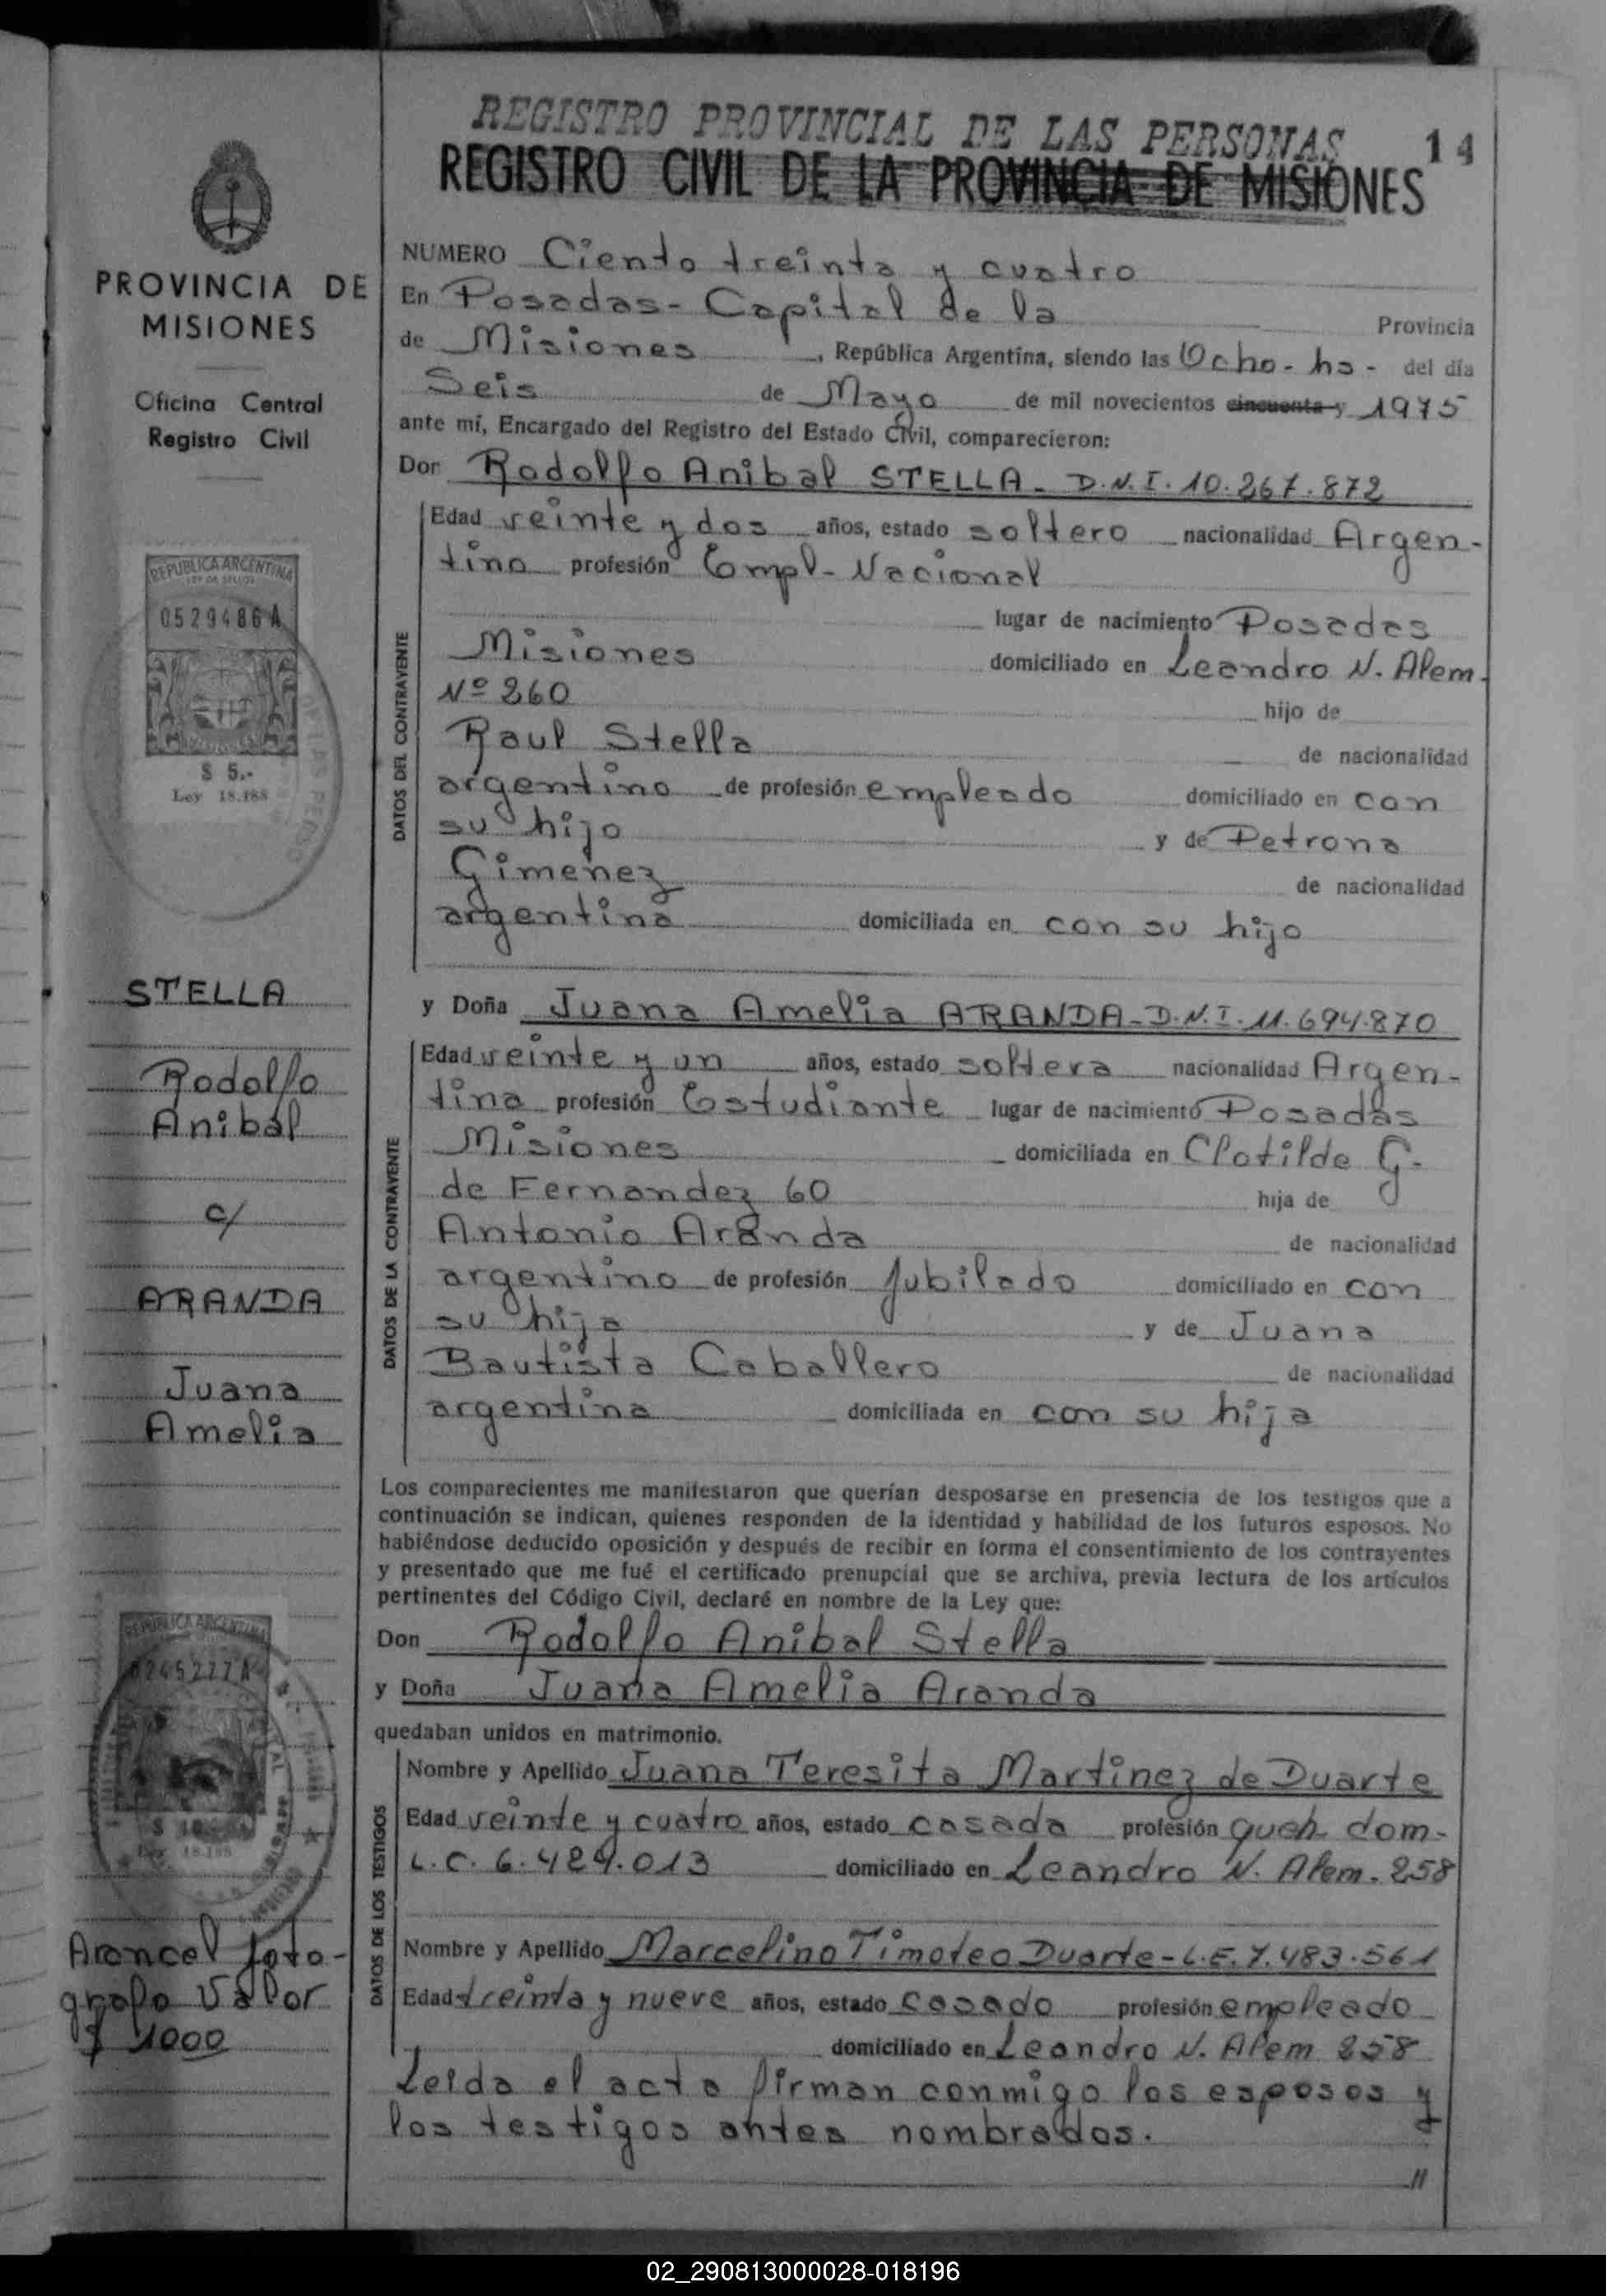 REGISTRO PROVINCIAL DE LAS PERSONAS
14
REGISTRO CIVIL DE LA PROVINCIA DE MISIONES
PROVINCIA DE
MISIONES
Oficina Central
Registro Civil
REPUBLICA ARGENTINA
LEY DE SELLOS
0529486 A
$ 5.-
Ley 18.188
STELLA
Rodolfo
Anibal
c/
ARANDA
Juana
Amelia
REPUBLICA ARGENTINA
0245277 A
$ 10
Ley 18.188
Arancel foto-
grafo Valor
$ 1000
NUMERO Ciento treinta y cuatro
En Posadas- Capital de la Provincia
de Misiones, República Argentina, siendo las Ocho- hs- del día
Seis de Mayo de mil novecientos cincuenta y 1975
ante mí, Encargado del Registro del Estado Civil, comparecieron:
Don Rodolfo Anibal STELLA- D.N.I. 10.267.872
DATOS DEL CONTRAYENTE
Edad veinte y dos años, estado soltero nacionalidad Argen-
tino profesión Empl- Nacional
lugar de nacimiento Posadas
Misiones domiciliado en Leandro N. Alem-
Nº 260 hijo de
Raul Stella de nacionalidad
argentino de profesión empleado domiciliado en con
su hijo y de Petrona
Gimenez de nacionalidad
argentina domiciliada en con su hijo
y Doña Juana Amelia ARANDA- D.N.I. 11.694.870
DATOS DE LA CONTRAYENTE
Edad veinte y un años, estado soltera nacionalidad Argen-
tina profesión Estudiante lugar de nacimiento Posadas
Misiones domiciliada en Clotilde G-
de Fernandez 60 hija de
Antonio Aranda de nacionalidad
argentino de profesión Jubilado domiciliado en con
su hija y de Juana
Bautista Caballero de nacionalidad
argentina domiciliada en con su hija
Los comparecientes me manifestaron que querían desposarse en presencia de los testigos que a
continuación se indican, quienes responden de la identidad y habilidad de los futuros esposos. No
habiéndose deducido oposición y después de recibir en forma el consentimiento de los contrayentes
y presentado que me fué el certificado prenupcial que se archiva, previa lectura de los artículos
pertinentes del Código Civil, declaré en nombre de la Ley que:
Don Rodolfo Anibal Stella
y Doña Juana Amelia Aranda
quedaban unidos en matrimonio.
DATOS DE LOS TESTIGOS
Nombre y Apellido Juana Teresita Martinez de Duarte
Edad veinte y cuatro años, estado casada profesión queh- dom-
L.C. 6.429.013 domiciliado en Leandro N. Alem- 258
Nombre y Apellido Marcelino Timoteo Duarte- L.E. 7.483.561
Edad treinta y nueve años, estado casado profesión empleado
domiciliado en Leandro N. Alem 258
Leida el acta firman conmigo los esposos y
los testigos antes nombrados.
//
02_290813000028-018196